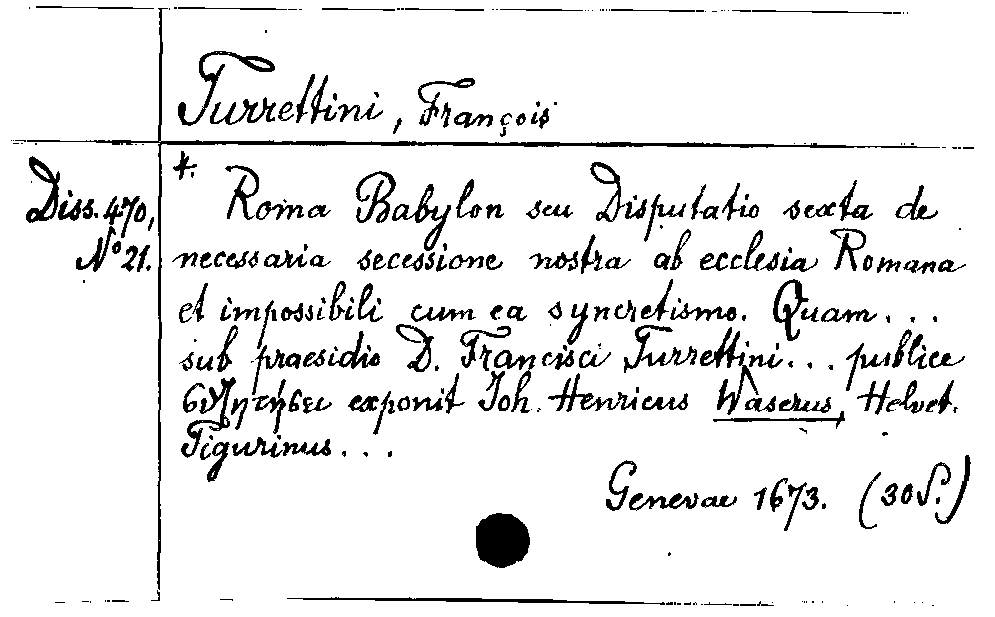 Turrettini, François
Diss. 470,
N° 21.
4.
Roma Babylon seu Disputatio sexta de
necessaria secessione nostra ab ecclesia Romana
et impossibili cum ea syncretismo. Quam...
sub praesidio D. Francisci Turrettini... publice
συζητήσει exponit Joh. Henricus Waserus, Helvet.
Tigurinus...
Genevae 1673. (30 S.)